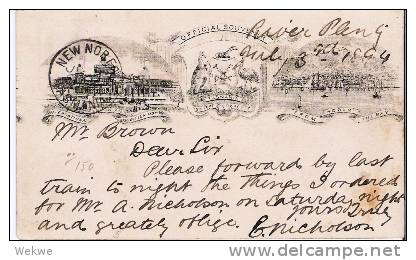 OFFICIAL SOUVENIR
River Plenty
July 3rd 1894
NEW NORFOLK
TASMANIA
Mr. Brown
Dear Sir
Please forward by last
train to night the things I ordered
for Mr A. Nicholson on Saturday night
and greately oblige yours Truly
C. Nicholson
№ 150
Wekwe
www.delcampe.net